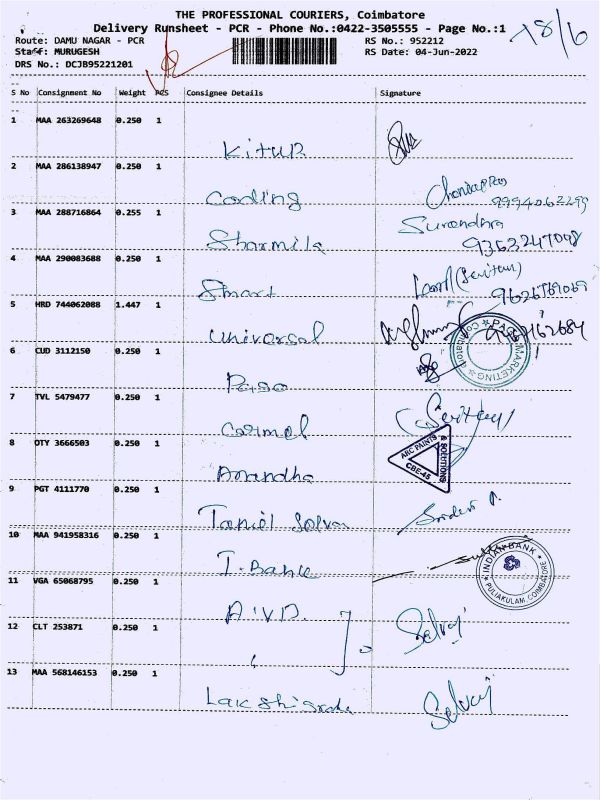 THE PROFESSIONAL COURIERS, Coimbatore
Delivery Runsheet - PCR - Phone No.:0422-3505555 - Page No.:1
18/6
Route: DAMU NAGAR - PCR
RS No.: 952212
Staff: MURUGESH
RS Date: 04-Jun-2022
DRS No.: DCJB95221201
S No Consignment No Weight PCS Consignee Details Signature
1 MAA 263269648 0.250 1
Kitur
2 MAA 286138947 0.250 1
Coding
9994062299
3 MAA 288716864 0.255 1
Surendhra
Sharmila 9363247098
4 MAA 290083688 0.250 1
Smart 9626769069
5 HRD 744062088 1.447 1
Universal
PACE MARKETING Coimbatore
6 CUD 3112150 0.250 1
Paso
7 TVL 5479477 0.250 1
Carmel
8 OTY 3666503 0.250 1
ABC PAINTS & SOLUTIONS CBE-45
Anandha
9 PGT 4111770 0.250 1
Tamil Selvan
10 MAA 941958316 0.250 1
I. Bank
INDIAN BANK PULIAKULAM, COIMBATORE
11 VGA 65068795 0.250 1
A.V.D.
12 CLT 253871 0.250 1
Selvaj
13 MAA 568146153 0.250 1
Selvaj